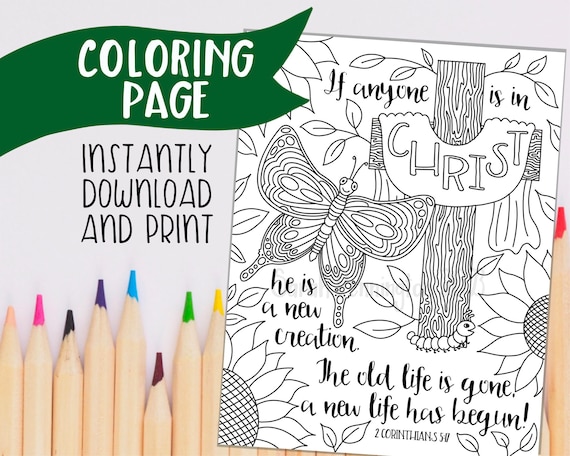 COLORING
PAGE
INSTANTLY
DOWNLOAD
AND PRINT
If anyone is in
CHRIST
he is
a new
creation.
The old life is gone,
a new life has begun!
2 CORINTHIANS 5:17